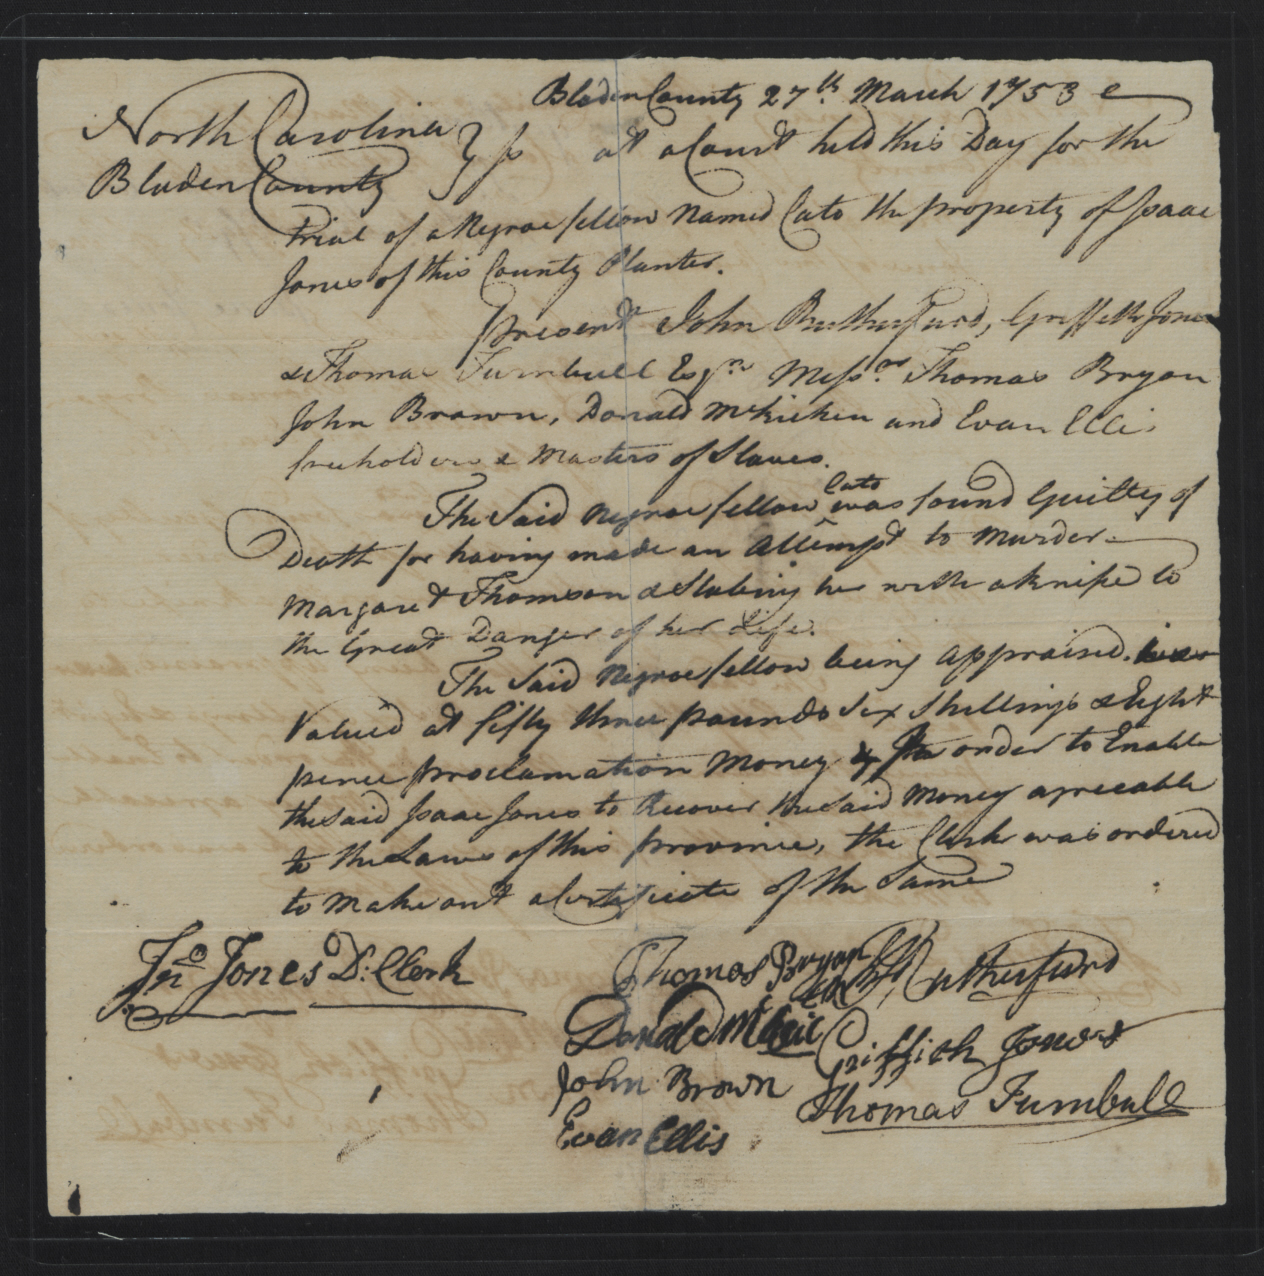 Bladen County 27th. March 1753
North Carolina } ss at a Court held this Day for the
Bladen County
Trial of a Negroe fellow Named Cato the property of Isaac
Jones of this County Planter.
Present John Rutherfurd, Griffeth Jones
& Thomas Turnbull Esqrs Messrs. Thomas Bryan
John Brown, Donald McKichen and Evan Ellis
freeholders & Masters of Slaves.
The Said Negroe fellow Cato was found Guilty of
Death for having made an Attempt to Murder
Margaret Thomson & Stabing her with a knife to
the Great Danger of her Life.
The Said Negroe fellow being appraised was
Valued at fifty three pounds Six Shillings & Eight
pence proclamation Money & In order to Enable
the said Isaac Jones to Recover the said Money agreeable
to the Laws of this province, the Clerk was ordered
to make out a Certificate of the Same
Jno Jones D: Clerk
Thomas Bryan
Rutherfurd
Donald
Griffith Jones
John Brown
Thomas Turnbull
Evan Ellis